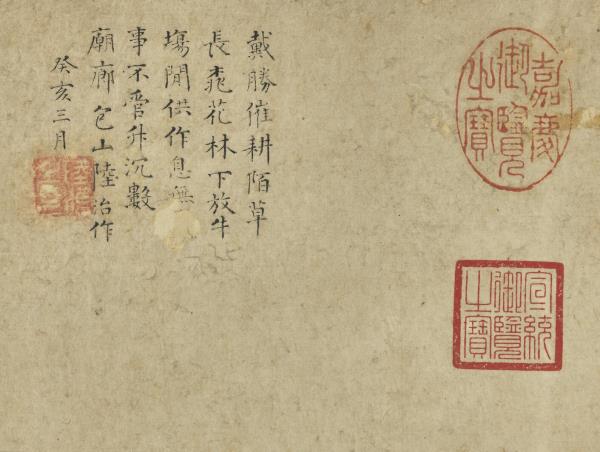 嘉慶
御覽
之寶
宣統
御覽
之寶
戴勝催耕陌草
長桃花林下放牛
塲閒供作息無
事不管升沉數
廟廊包山陸治作
癸亥三月